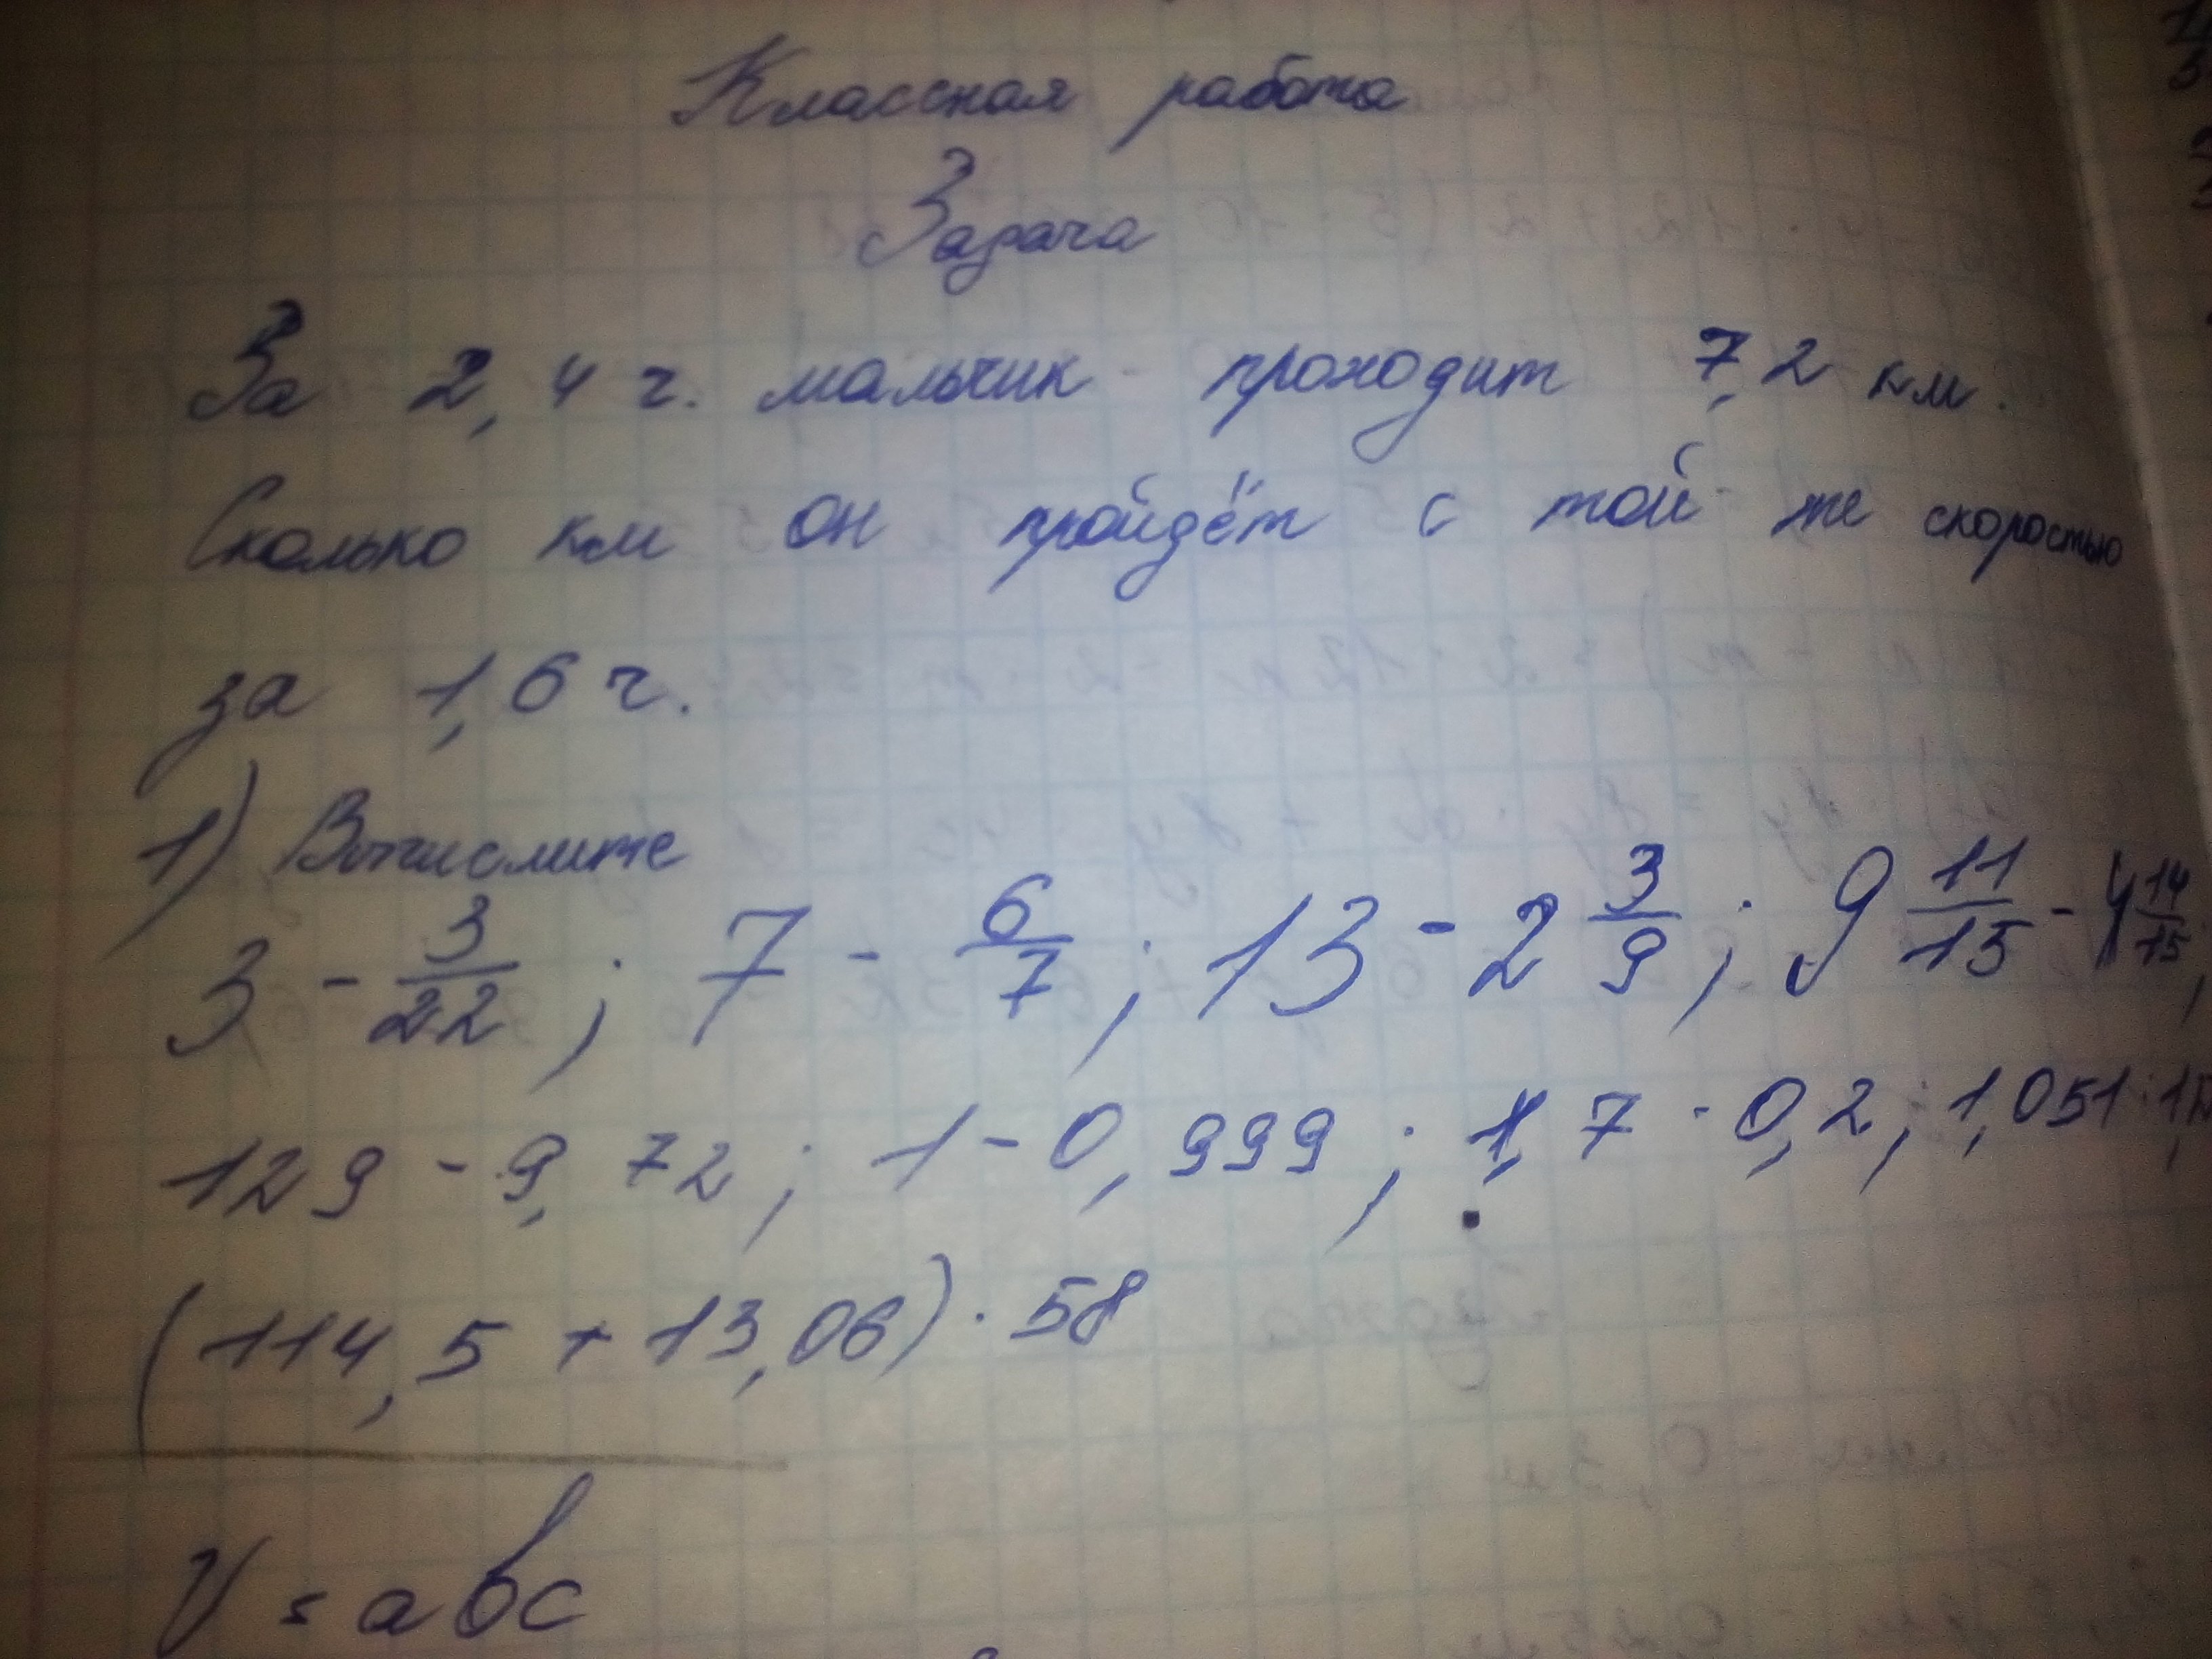 Классная работа
Задача
За 2,4 ч. мальчик проходит 7,2 км.
Сколько км он пройдёт с той же скоростью
за 1,6 ч.
1) Вычислите
3 - 3/22 ; 7 - 6/7 ; 13 - 2 3/9 ; 9 11/15 - 4 14/15 ;
129 - 9,72 ; 1 - 0,999 ; 1,7 · 0,2 ; 1,051 :
(114,5 + 13,06) · 58
V = abc